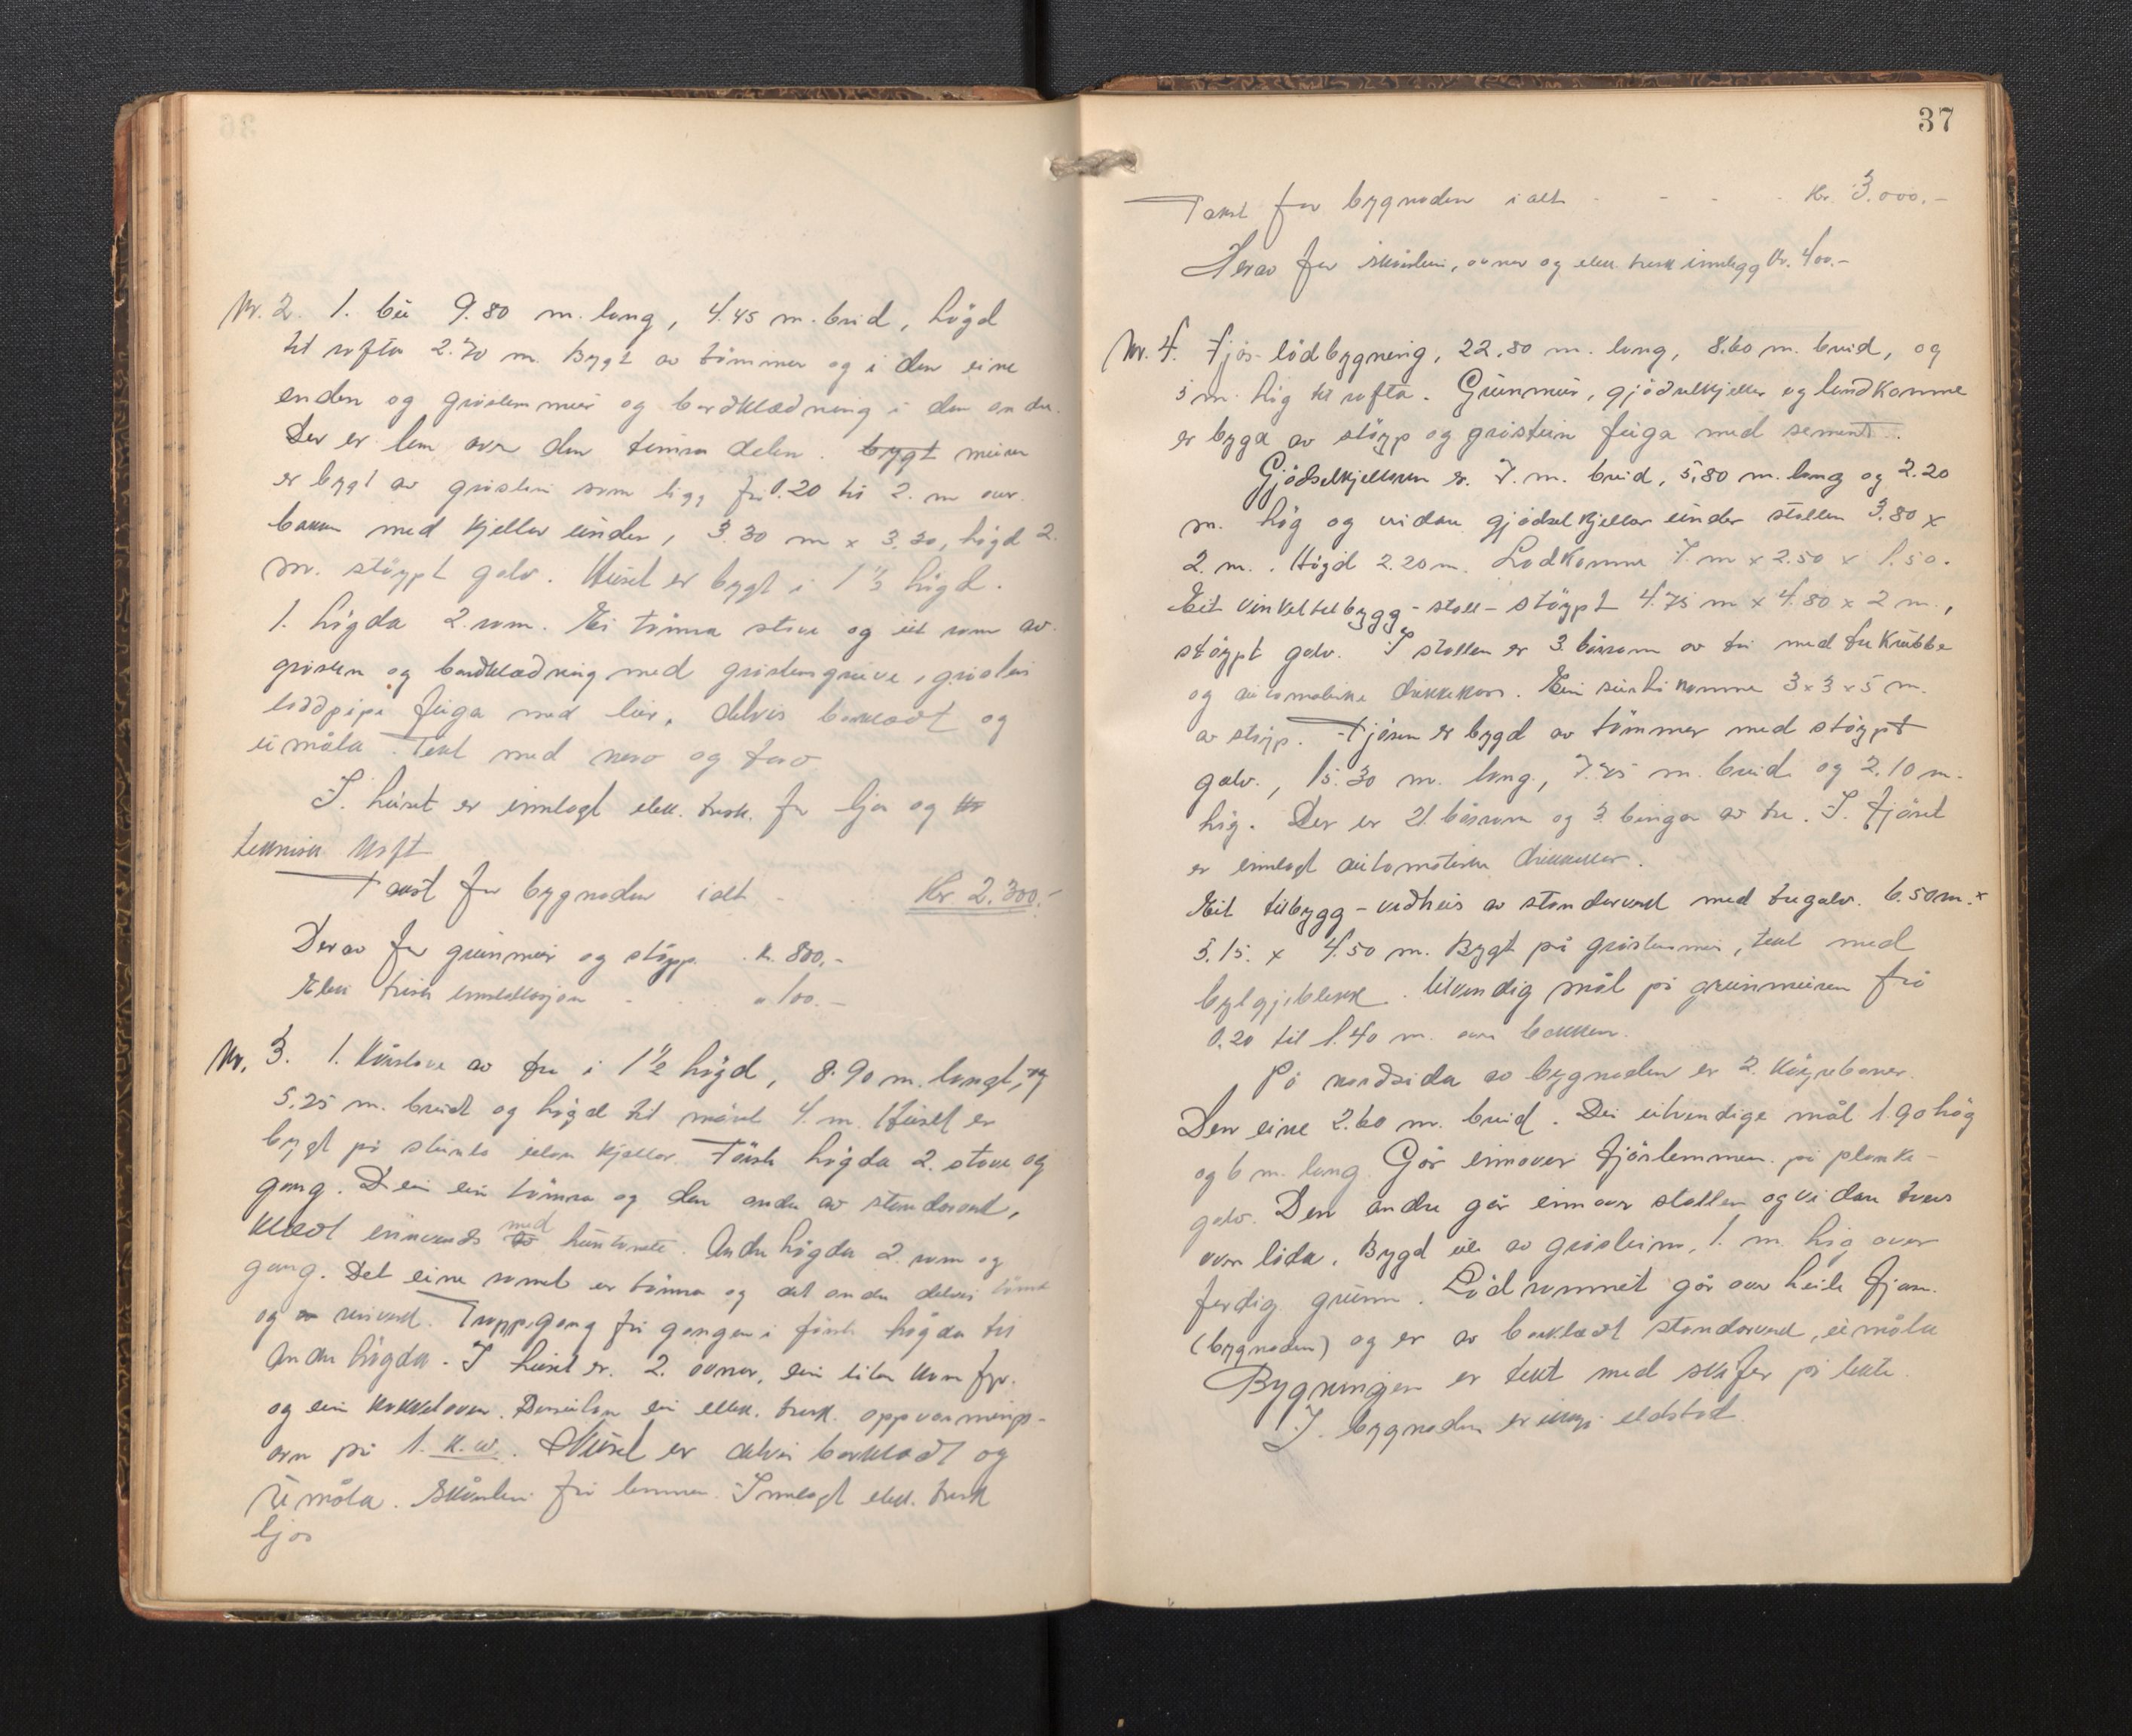 Nr. 2. 1. bu 9.80 m. lang, 4.45 m. breid, högd
til rafta 2.70 m. Bygt av tömmer og i den eine
enden og gråsteinmur og bordklædning i den andre.
Der er lem over den tömra delen. bygt muren
er bygt av gråstein som ligg frå 0.20 til 2. m over
bakken med kjellar under, 3.30 m x 3.30, högd 2.
m. stöypt golv. Huset er bygt i 1 1/2 högd.
1. högda 2. rom. Ei tömra stove og eit rom av
gråstein og bordklædning med gråsteinsgruve, gråstein
loddpipe fuga med leir, delvis bordklædt og
umåla. Tekt med never og torv
I huset er innlagt elek. trisk. for ljos og
teknisk kraft
Takst for bygnaden ialt - Kr. 2.300.-
Derav for grunnmur og stöypp. k. 800.-
Elek trisk innstallasjon - " 100.-
Nr. 3. 1. Kårstove av tre i 1 1/2 högd, 8.90 m. langt, og
5.25 m. breidt og högd til mönet 4. m. Huset er
bygt på steinlo utan kjellar. Förste högda 2. stove og
gang. Den ein tömra og den andre av standarverk,
klædt innvends med huntonite. Andre högda 2. rom og
gang. Det eine romet er tömra og det andre delvis tömra
og reisverk. Trappegang frå gangen i förste högda til
andre högda. I huset er. 2. ovner, ein liten kom fyr.
og ein kokkelover. Desutan ein elek. trisk. oppvarmings-
ovn på 1. k.w. Huset er delvis bordklædt og
umåla. Skårstein frå lemmen. Innlagt elek. trisk
ljos
37
Takst for bygnaden ialt - - - - Kr. 3.000.-
Herav for skårstein, ovner og elek. trisk innlegg Kr. 400.-
Nr. 4. Fjös-lödbygning, 22.80 m. lang, 8.60 m. breid, og
5 m. hög til rafta. Grunmur, gjödselkjellar og landkomme
er bygd av stöyp og gråstein fuga med sement.
Gjödselkjellaren er. 7. m. breid, 5.80 m. lang og 2.20
m. hög og vidare gjödselkjellar under stallen 3.80 x
2. m. Högd 2.20 m. Landkomme 7. m x 2.50 x 1.50.
Eit vinkeltilbygg - stall - stöypt 4.75 m x 4.80 x 2 m.,
stöypt golv. I stallen er 3. båsrom av tre med trekrubbe
og automatiske drikkekar. Ein surhökomme 3 x 3 x 5 m.
av stöyp. Fjösen er bygd av tömmer med stöypt
golv, 15.30 m. lang, 7.75 m. breid og 2.10 m.
hög. Der er 21. båsrom og 3. bingar av tre. I fjöset
er innlagt automatiske drikkekar.
Eit tilbygg - vedhus av standarverk med tregolv. 6.50 m. x
5.15. x 4.50 m. Bygt på gråsteinmur, tekt med
bylgjeblekk. Utvendig mål på grunnmuren frå
0.20 til 1.40 m. over bakken.
På nordsida av bygnaden er 2. köyrebruer.
Den eine 2.60 m. breid. Dei utvendige mål 1.90 hög
og 6 m. lang. Går innover fjöslemmen på planke-
golv. Den andre går innover stallen og vidare tvers
over löda. Bygd ute av gråstein, 1. m. hög over
ferdig grunn. Lödrommet går over heile fjös.
(bygnaden) og er av bordklædt standarverk, umåla
Bygningen er tekt med skifer på lekte.
I bygnaden er ikkje eldstad.